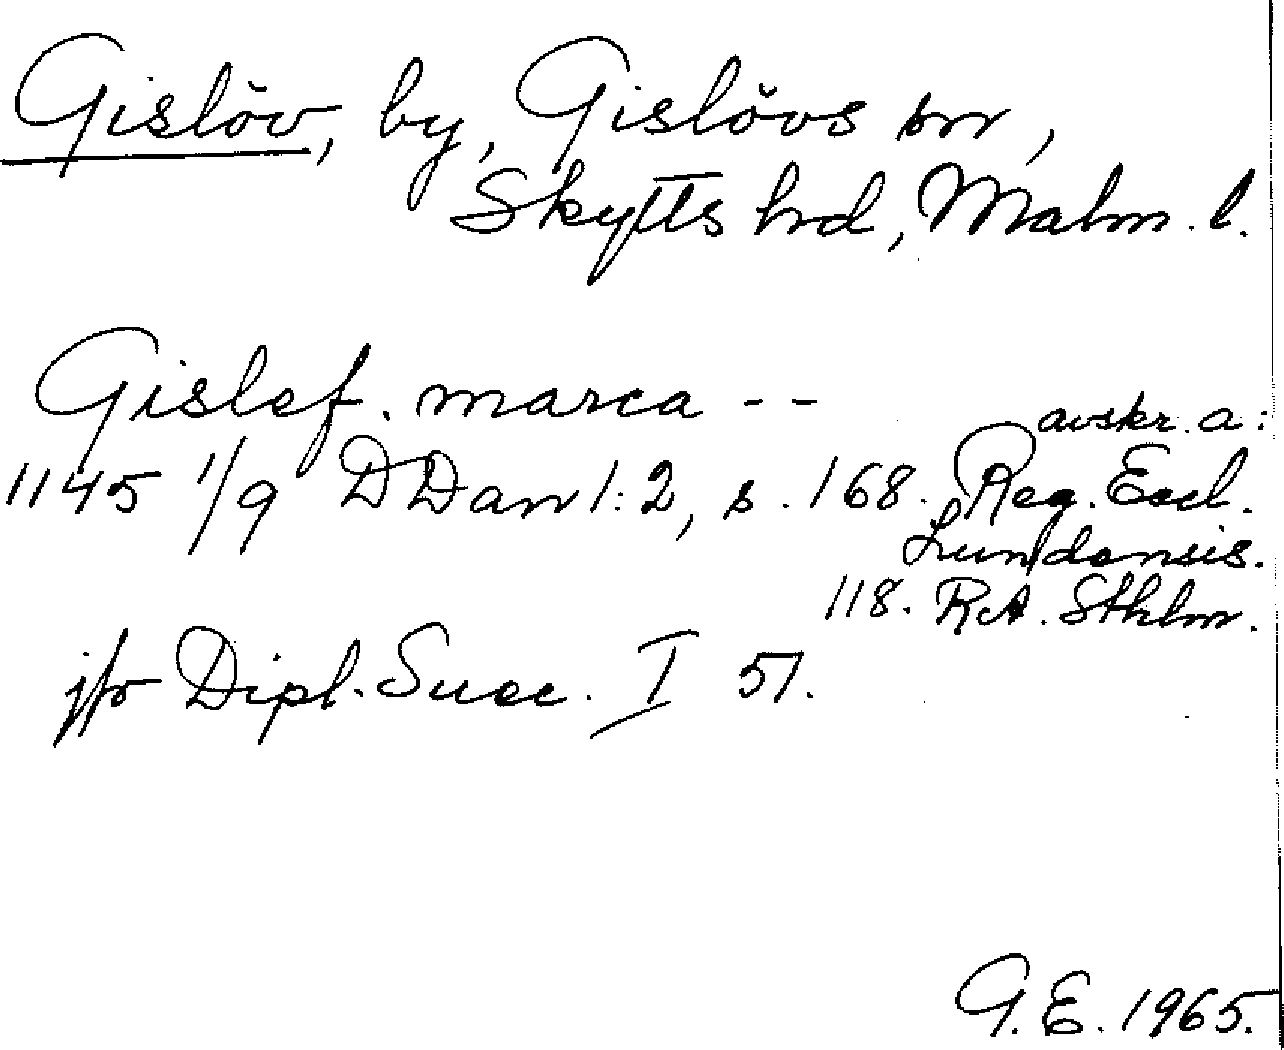 Gislöv, by, Gislövs sn,
Skytts hrd, Malm. l.
Gislef. marca --
avskr. a:
1145 1/9 DDan 1:2, s. 168. Reg. Eccl.
Lundensis.
118. RA. Sthlm.
jfr Dipl. Suec. I 51.
G.E. 1965.